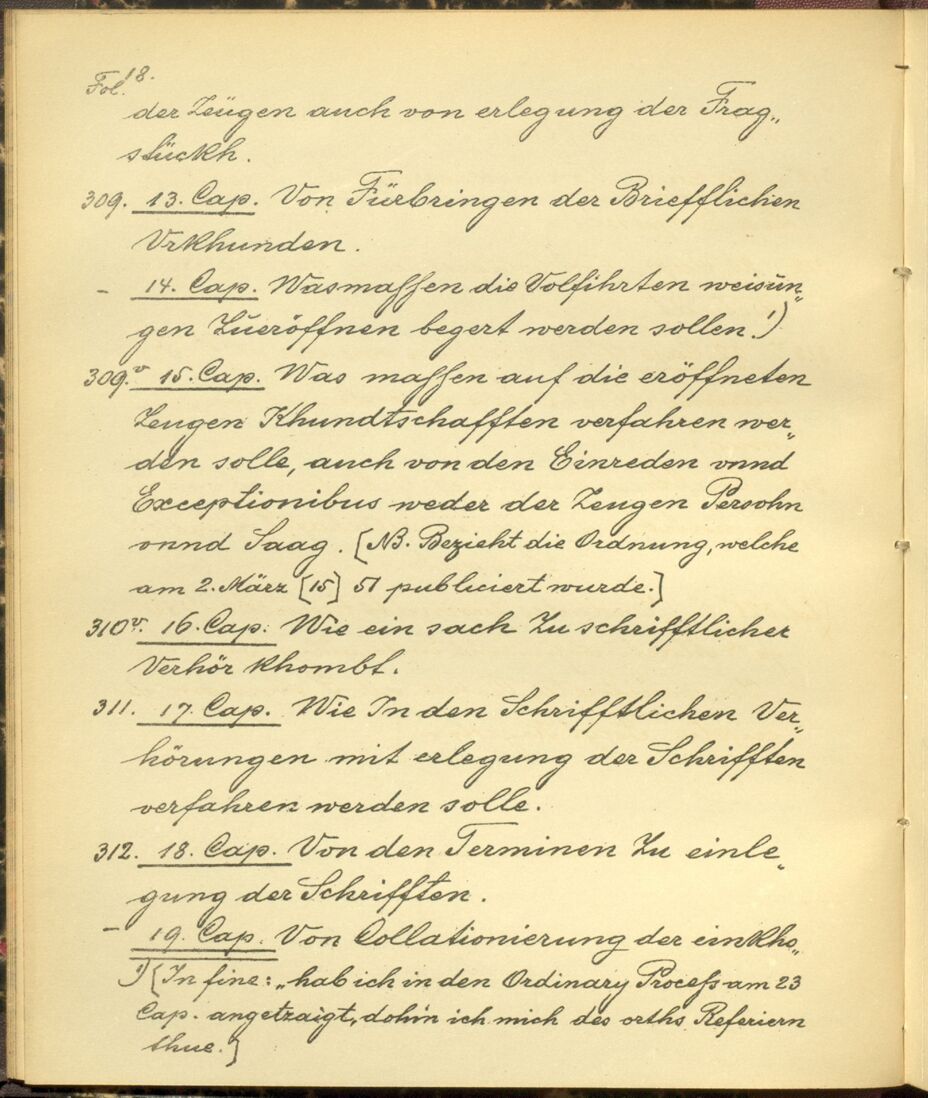 18.
Fol.
der Zeügen auch von erlegung der Frag„
stückh.
309. 13. Cap. Von Fürbringen der Briefflichen
Vrkhunden.
– 14. Cap. Wasmaſſen die Volfihrten weisün„
gen Zueröffnen begert werden sollen.¹)
309.v 15. Cap. Was maſſen auf die eröffneten
Zeugen Khundtschafften verfahren wer„
den solle, auch von den Einreden vnnd
Exceptionibus weder der Zeugen Persohn
vnnd Saag. [NB. Bezieht die Ordnung, welche
am 2. März [15] 51 publiciert wurde.]
310v. 16. Cap. Wie ein sach Zu schrifftlicher
Verhör khombt.
311. 17. Cap. Wie In den Schrifftlichen Ver„
hörungen mit erlegung der Schrifften
verfahren werden solle.
312. 18. Cap. Von den Terminen Zu einle„
gung der Schrifften.
– 19. Cap. Von Collationierung der einkho„
¹) [In fine: „hab ich in den Ordinary Proceſs am 23
Cap. angetzaigt, dohin ich mich des orths Referiern
thue.]